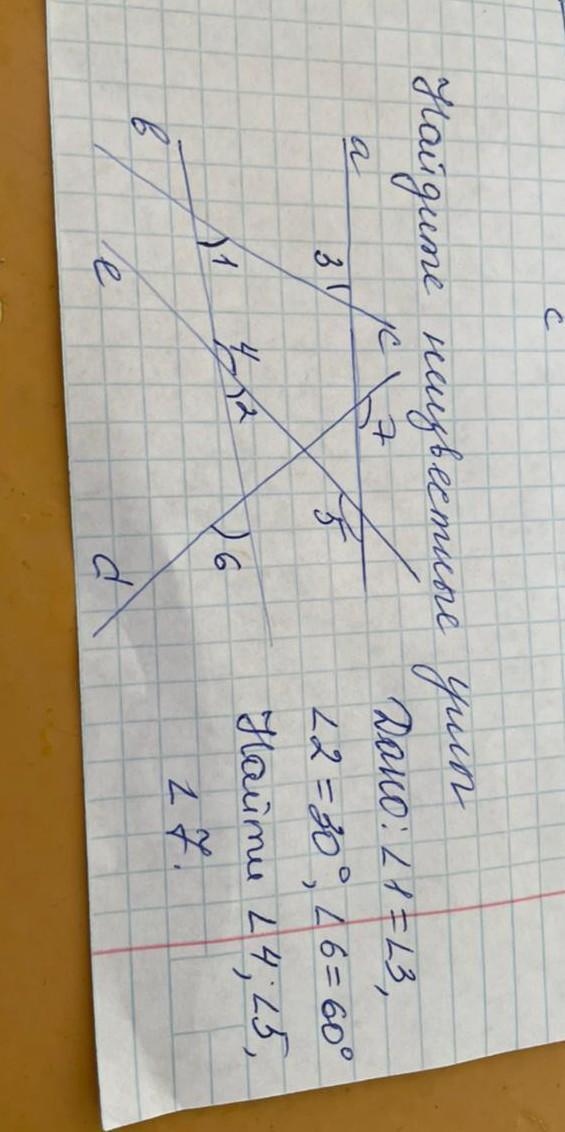 Найдите неизвестные углы
Дано: ∠1=∠3,
∠2=30°, ∠6=60°
Найти ∠4, ∠5,
∠7.
a
3
c
7
5
b
1
4
2
6
e
d
c